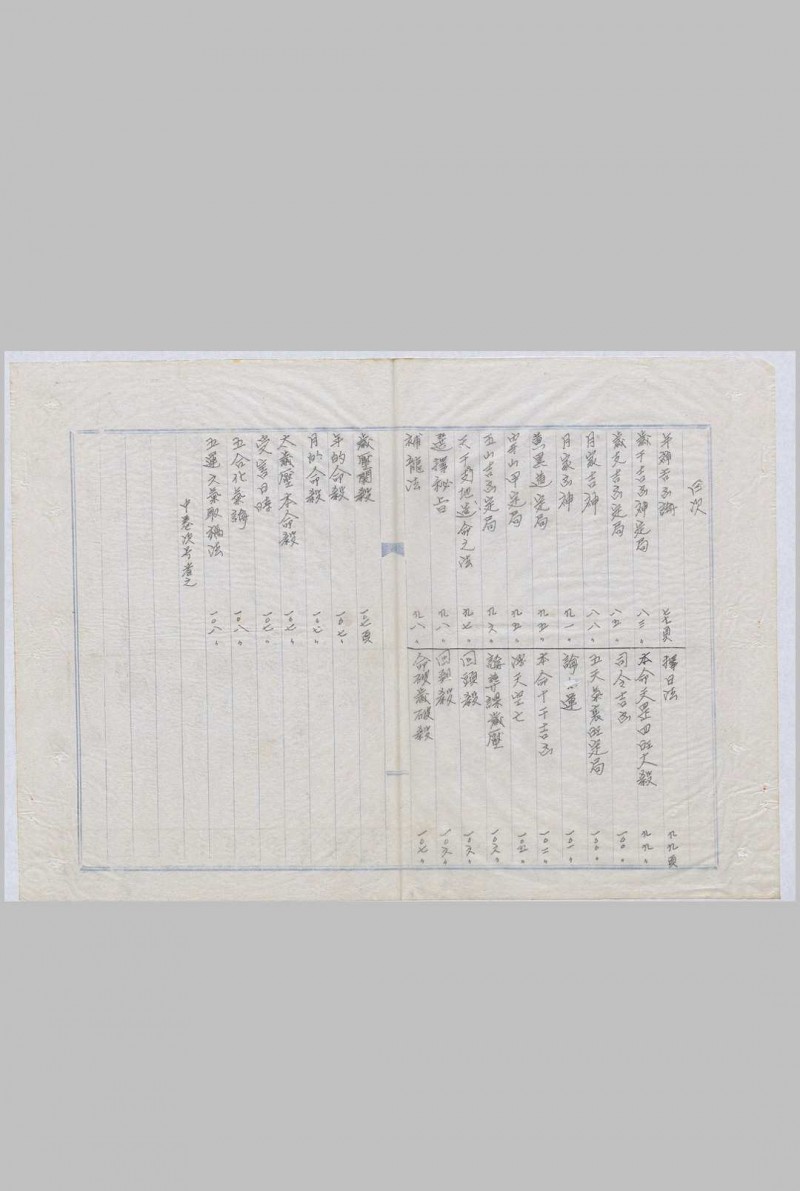 目次
年神吉凶論 七七頁
歲干吉凶神定局 八三〃
歲支吉凶定局 八五〃
月家吉神 八八〃
月家凶神 九一〃
黃黑道定局 九五〃
山甲定局 九五〃
五山吉凶定局 九六〃
天干 地造命之法 九七〃
選擇秘旨 九八〃
補龍法 九八〃
擇日法 九九頁
本命天星四旺大殺 九九〃
司令吉凶 一〇〇〃
五天氣衰旺定局 一〇〇〃
論六運 一〇一〃
本命十干吉凶 一〇二〃
浮天空亡 一〇五〃
論葬課歲壓 一〇六〃
回頭殺 一〇六〃
回 殺 一〇六〃
命破歲破殺 一〇七〃
歲壓關殺 一〇七頁
年的命殺 一〇七〃
月的命殺 一〇七〃
太歲壓本命殺 一〇七〃
受害日時 一〇七〃
五合化氣論 一〇八〃
五運六氣取 法 一〇八〃
中卷次